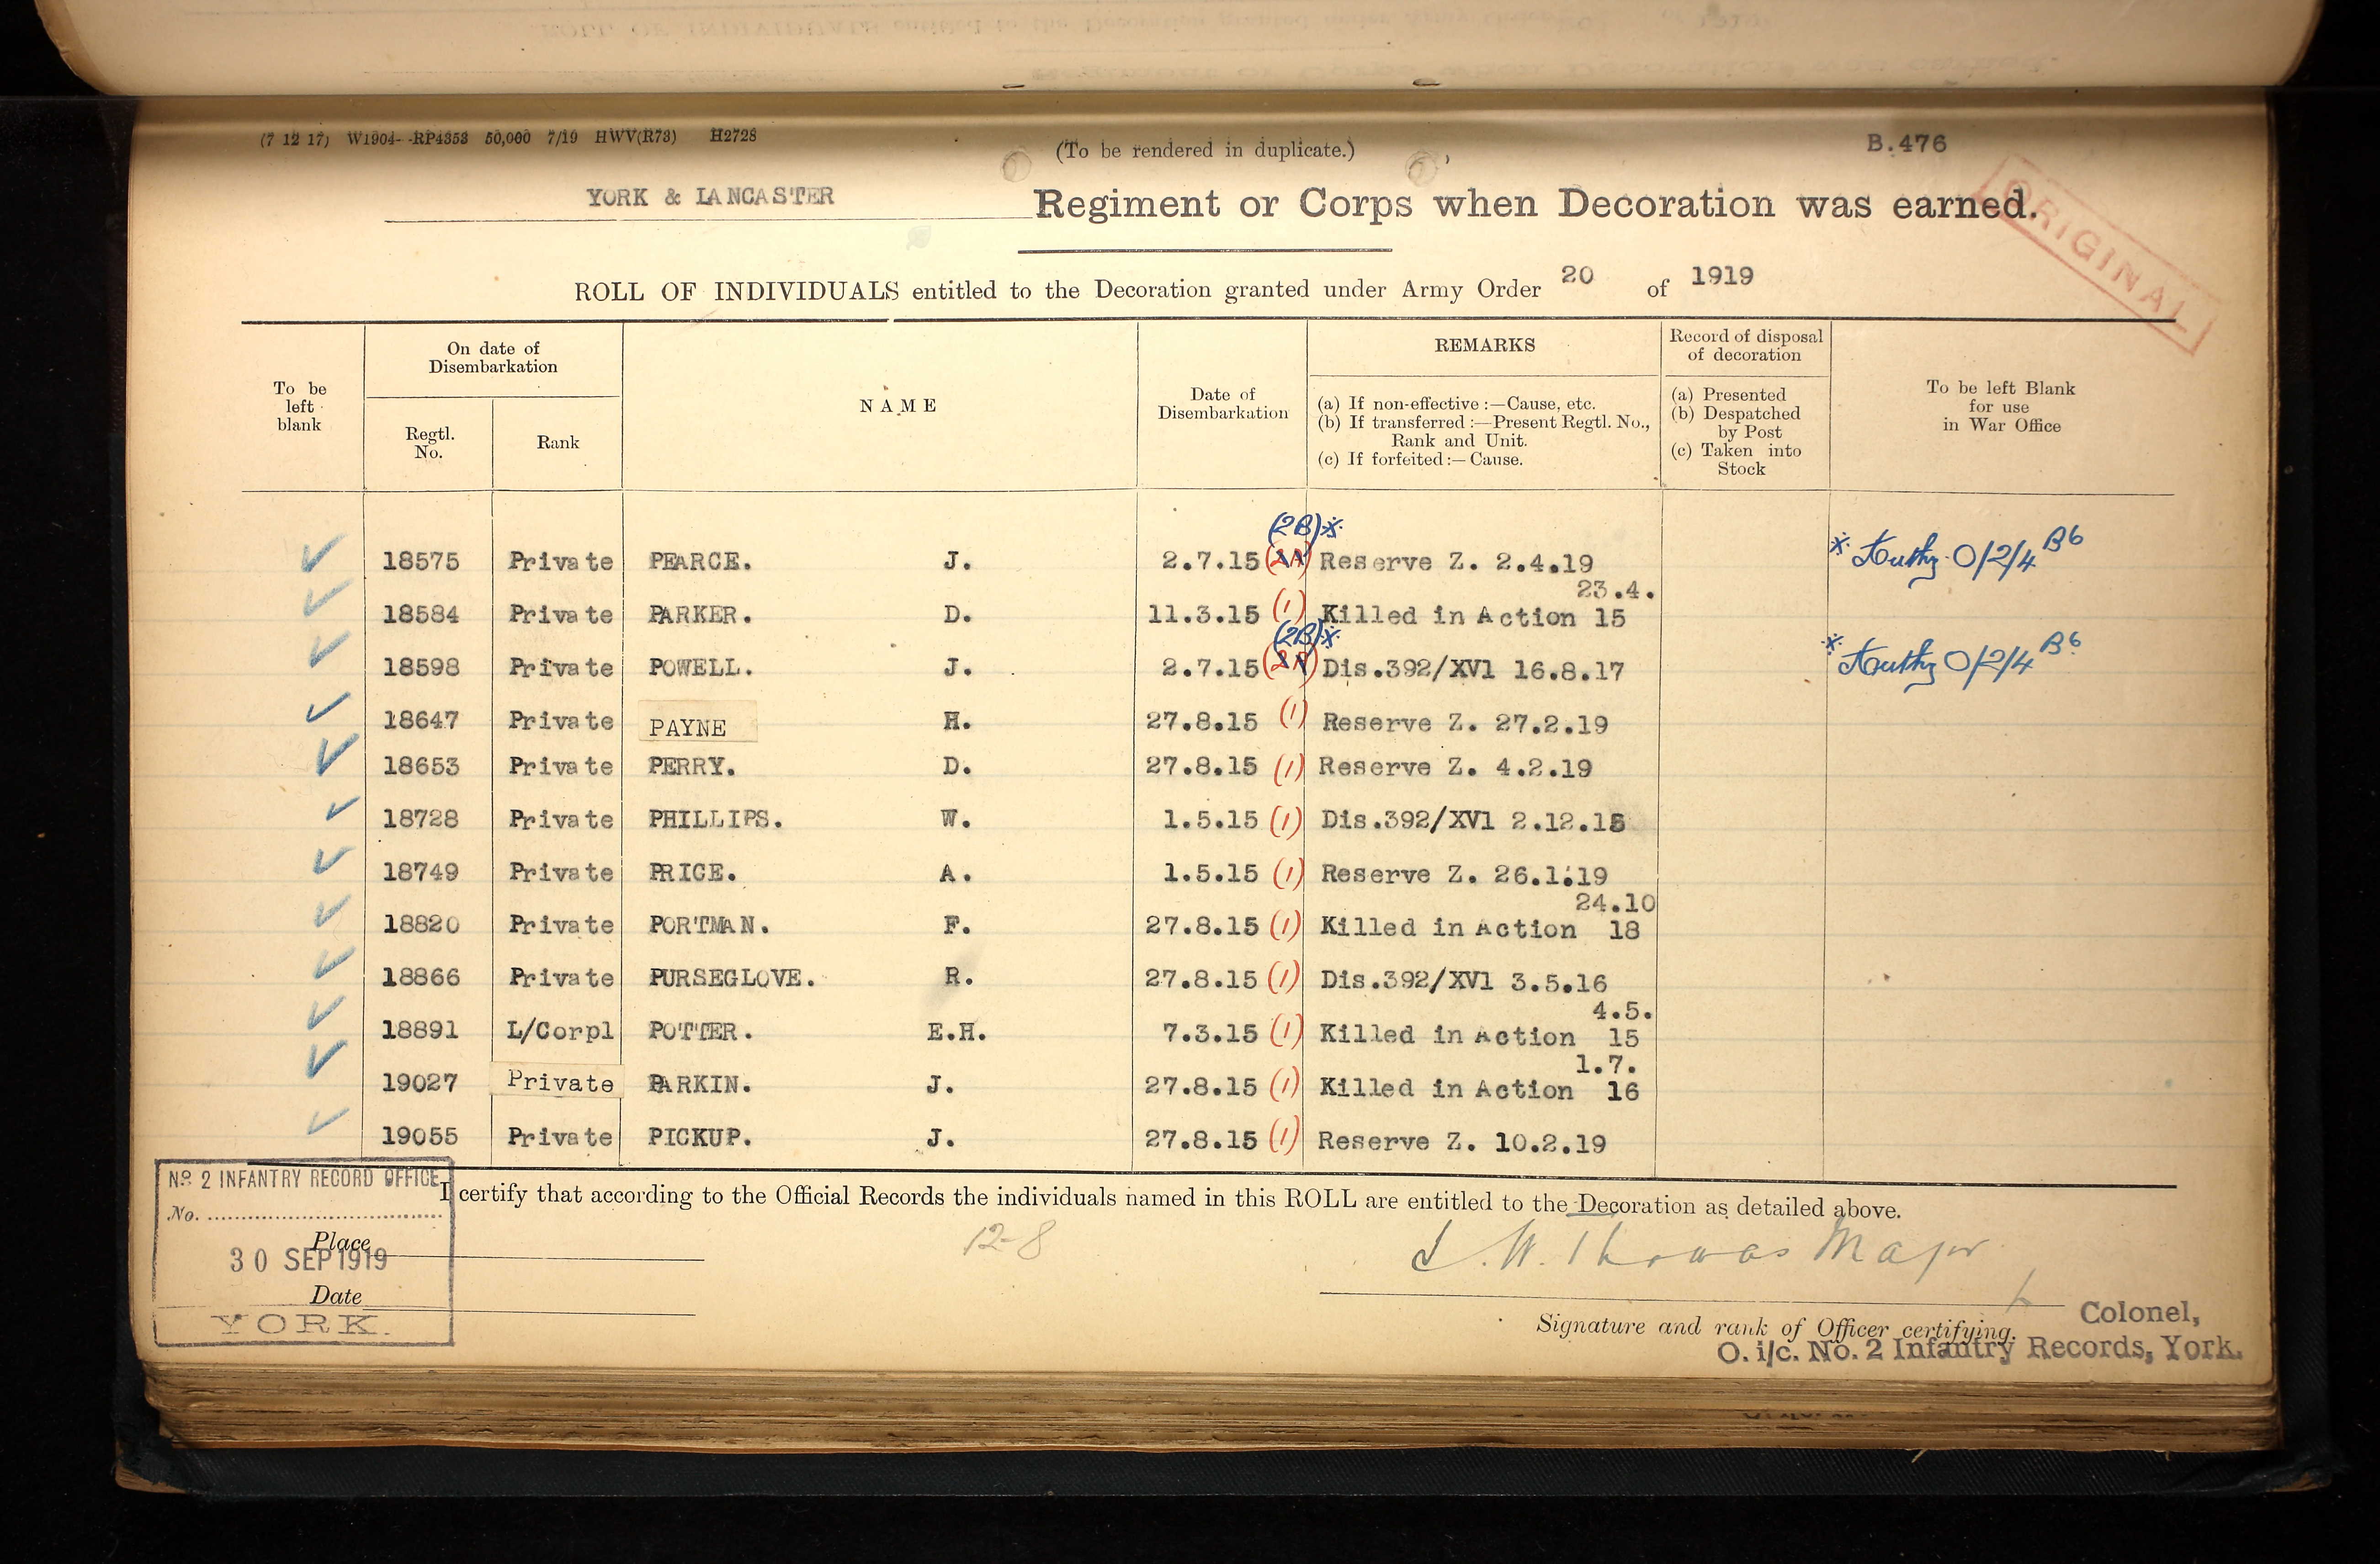 (7 12 17) W1904--RP4353 50,000 7/19 HWV(R73) H2728
(To be rendered in duplicate.)
B.476
YORK & LANCASTER Regiment or Corps when Decoration was earned.
ORIGINAL
ROLL OF INDIVIDUALS entitled to the Decoration granted under Army Order 20 of 1919
To be left blank
On date of Disembarkation
Regtl. No.
Rank
NAME
Date of Disembarkation
REMARKS
(a) If non-effective :—Cause, etc.
(b) If transferred :—Present Regtl. No., Rank and Unit.
(c) If forfeited :— Cause.
Record of disposal of decoration
(a) Presented
(b) Despatched by Post
(c) Taken into Stock
To be left Blank for use in War Office
(2B)*
18575 Private PEARCE. J. 2.7.15 Reserve Z. 2.4.19 * Authy O/2/4 B6
23.4.
18584 Private PARKER. D. 11.3.15 (1) Killed in Action 15
(2B)*
18598 Private POWELL. J. 2.7.15 Dis.392/XV1 16.8.17 * Authy O/2/4 B6
18647 Private PAYNE H. 27.8.15 (1) Reserve Z. 27.2.19
18653 Private PERRY. D. 27.8.15 (1) Reserve Z. 4.2.19
18728 Private PHILLIPS. W. 1.5.15 (1) Dis.392/XV1 2.12.15
18749 Private PRICE. A. 1.5.15 (1) Reserve Z. 26.1.19
24.10
18820 Private PORTMAN. F. 27.8.15 (1) Killed in Action 18
18866 Private PURSEGLOVE. R. 27.8.15 (1) Dis.392/XV1 3.5.16
4.5.
18891 L/Corpl POTTER. E.H. 7.3.15 (1) Killed in Action 15
1.7.
19027 Private PARKIN. J. 27.8.15 (1) Killed in Action 16
19055 Private PICKUP. J. 27.8.15 (1) Reserve Z. 10.2.19
No. 2 INFANTRY RECORD OFFICE
I certify that according to the Official Records the individuals named in this ROLL are entitled to the Decoration as detailed above.
No.
12-8
Place
30 SEP 1919
W. Thomas Major
Date
YORK.
Colonel,
Signature and rank of Officer certifying.
O. i/c. No. 2 Infantry Records, York.